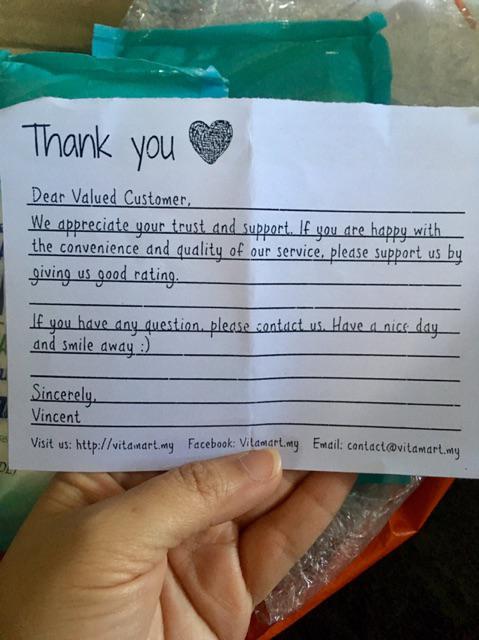 Thank you
Dear Valued Customer,
We appreciate your trust and support. If you are happy with
the convenience and quality of our service, please support us by
giving us good rating.
If you have any question, please contact us. Have a nice day
and smile away :)
Sincerely,
Vincent
Visit us: http://vitamart.my Facebook: Vitamart.my Email: contact@vitamart.my